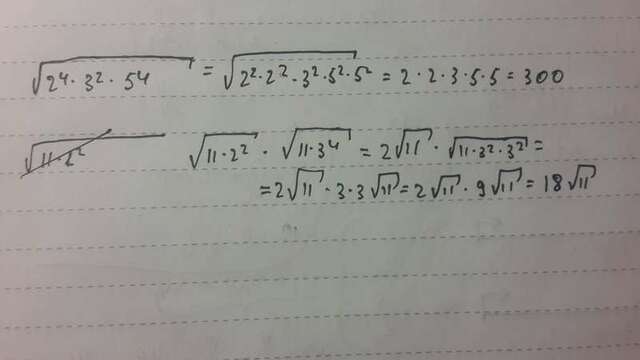 √2⁴·3²·5⁴ = √2²·2²·3²·5²·5² = 2·2·3·5·5 = 300
√11·2² √11·2² · √11·3⁴ = 2√11 · √11·3²·3² =
= 2√11 · 3·3√11 = 2√11 · 9√11 = 18√11